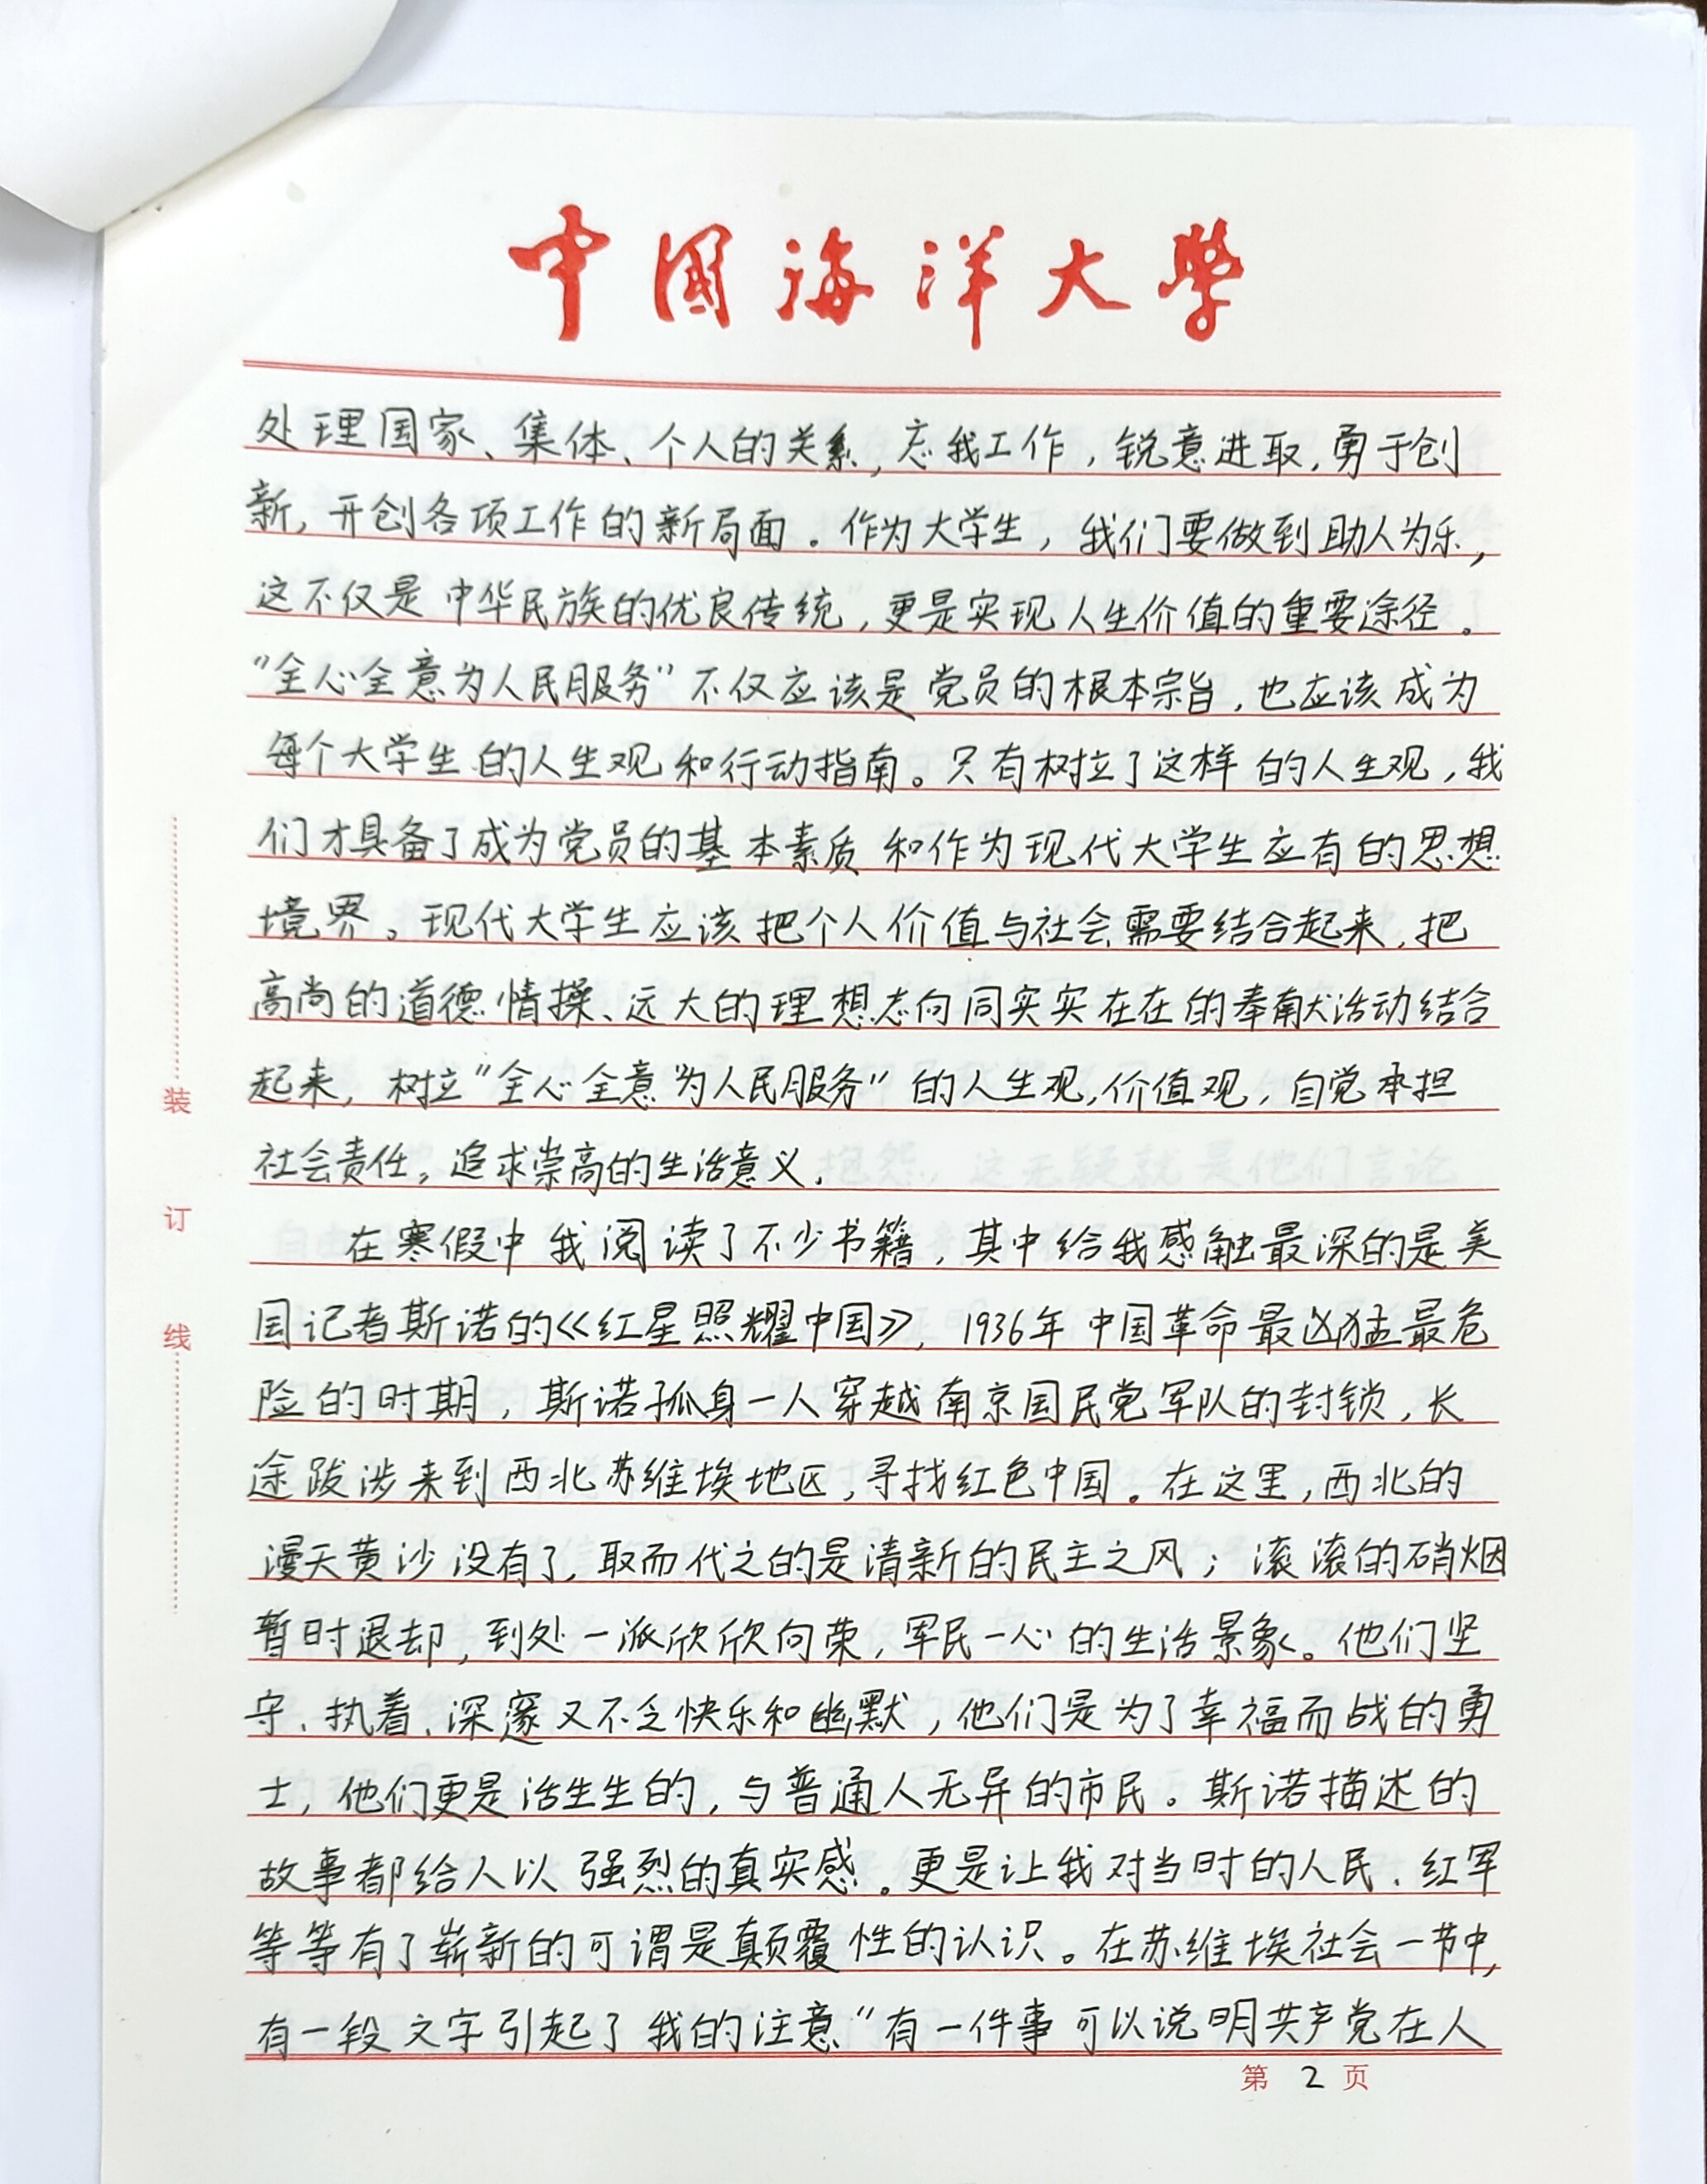 中国海洋大学
处理国家、集体、个人的关系,忘我工作,锐意进取,勇于创
新,开创各项工作的新局面。作为大学生,我们要做到助人为乐,
这不仅是中华民族的优良传统,更是实现人生价值的重要途径。
"全心全意为人民服务"不仅应该是党员的根本宗旨,也应该成为
每个大学生的人生观和行动指南。只有树立了这样的人生观,我
们才具备了成为党员的基本素质和作为现代大学生应有的思想
境界。现代大学生应该把个人价值与社会需要结合起来,把
高尚的道德情操、远大的理想志向同实实在在的奉献活动结合
起来,树立"全心全意为人民服务"的人生观,价值观,自觉承担
社会责任,追求崇高的生活意义.
在寒假中我阅读了不少书籍,其中给我感触最深的是美
国记者斯诺的《红星照耀中国》,1936年中国革命最凶猛最危
险的时期,斯诺孤身一人穿越南京国民党军队的封锁,长
途跋涉来到西北苏维埃地区,寻找红色中国。在这里,西北的
漫天黄沙没有了,取而代之的是清新的民主之风;滚滚的硝烟
暂时退却,到处一派欣欣向荣,军民一心的生活景象。他们坚
守、执着、深邃又不乏快乐和幽默,他们是为了幸福而战的勇
士,他们更是活生生的,与普通人无异的市民。斯诺描述的
故事都给人以强烈的真实感。更是让我对当时的人民、红军
等等有了崭新的可谓是颠覆性的认识。在苏维埃社会一节中,
有一段文字引起了我的注意"有一件事可以说明共产党在人
第 2 页
装
订
线